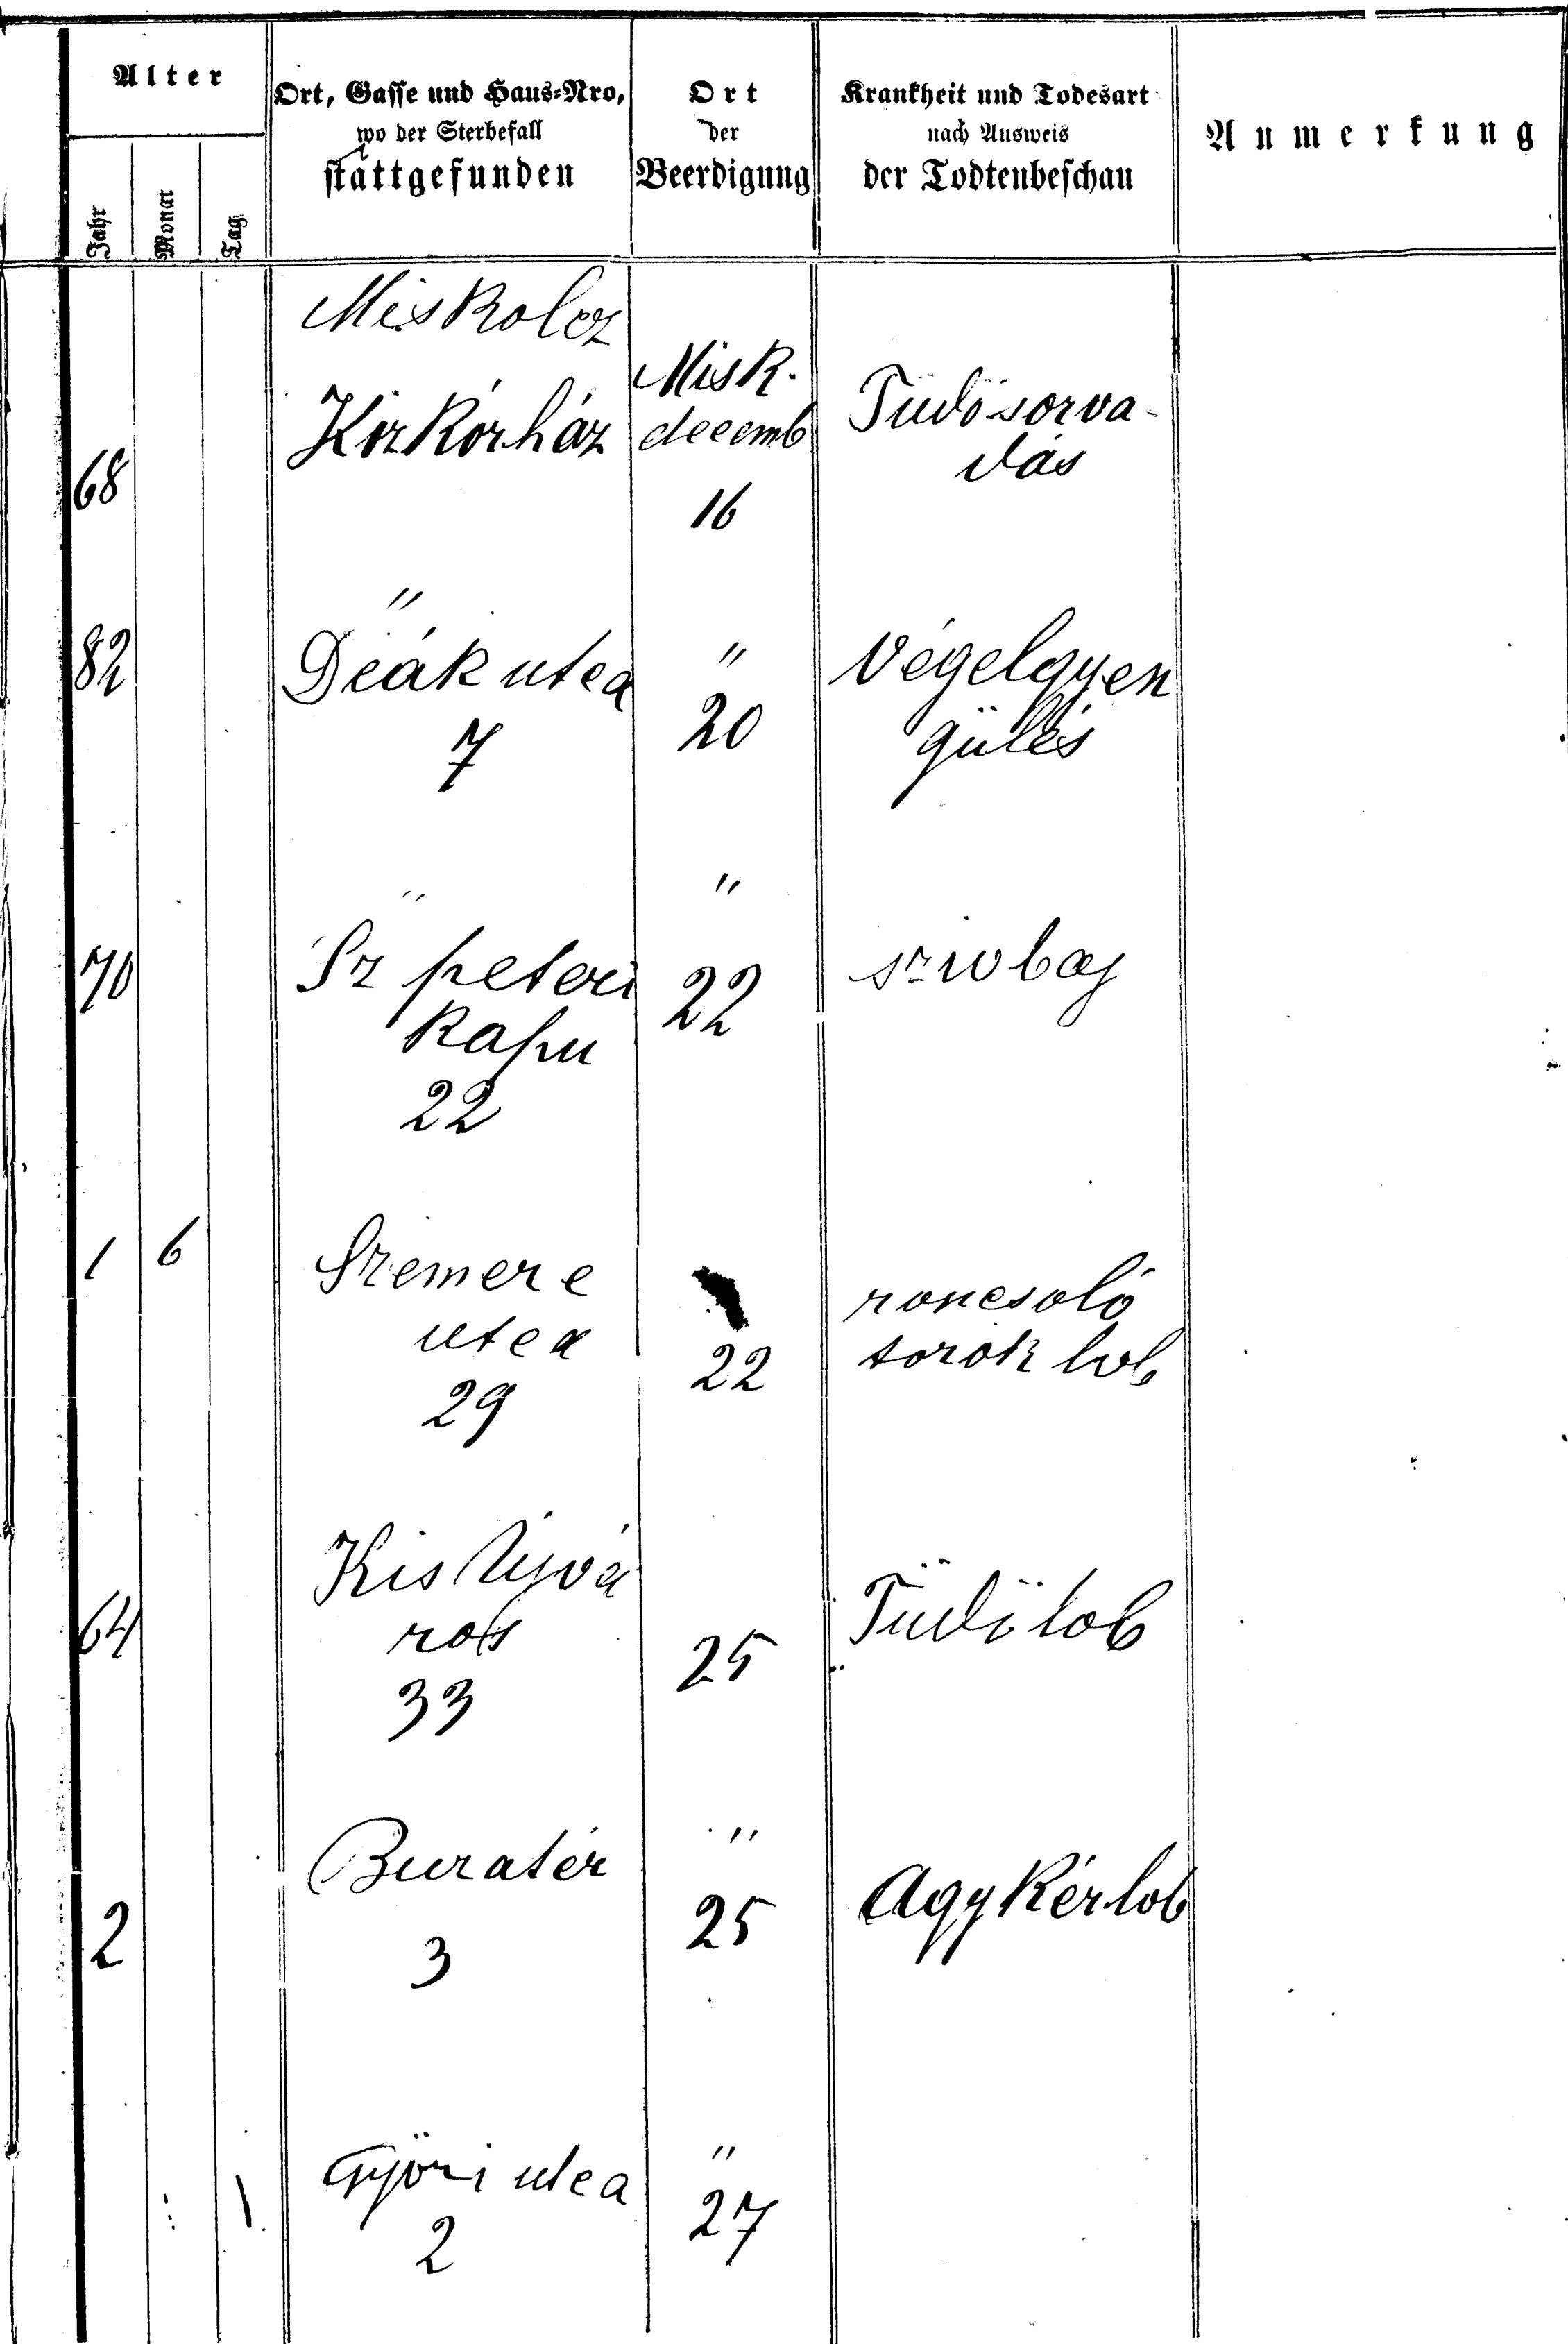 Alter
Jahr
Monat
Tag
Ort, Gasse und Haus-Nro,
wo der Sterbefall
stattgefunden
Ort
der
Beerdigung
Krankheit und Todesart
nach Ausweis
der Todtenbeschau
Anmerkung
68
Miskolcz
Közkórház
Misk.
decemb
16
Tüdősorva-
dás
82
"
Deák utca
7
"
20
Végelgyen
gülés
70
"
Sz peteri
kapu
22
"
22
szivbaj
1
6
Szemere
utca
29
22
roncsoló
torok lob
64
Kis Ujvá
ros
33
25
Tüdő lob
2
Buzatér
3
"
25
Agykérlob
1
Győri utca
2
"
27